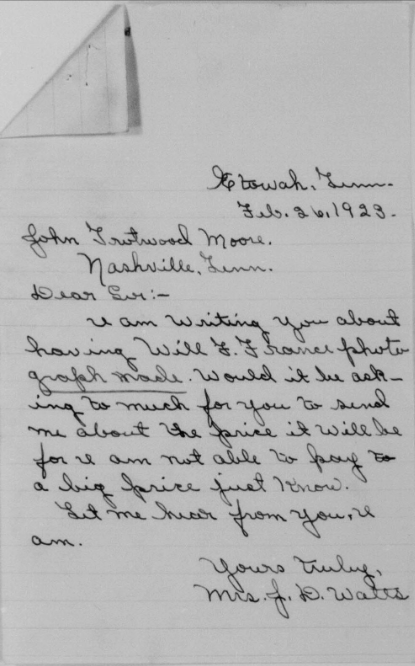 Etowah, Tenn.
Feb. 26, 1923.
John Trotwood Moore.
Nashville, Tenn.
Dear Sir:-
I am writing you about
having Will F. France photo
graph made. Would it be ask-
ing to much for you to send
me about the price it will be
for I am not able to pay to
a big price just know.
Let me hear from you, I
am.
Yours truly,
Mrs. J. D. Watts